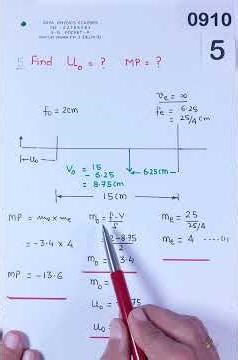 DATA PHYSICS CLASSES
0910
5
5 Find U₀ = ? MP = ?
vₑ = ∞
f₀ = 2cm
fₑ = 6.25
= 25/4 cm
u₀
V₀ = 15
- 6.25
= 8.75 cm
6.25cm
15cm
MP = m₀ × mₑ
= -3.4 × 4
MP = -13.6
m₀ = f-V
f
2-8.75
2
m₀
3.4
m₀ =
u₀ =
75
u₀
mₑ = 25
25/4
mₑ = 4